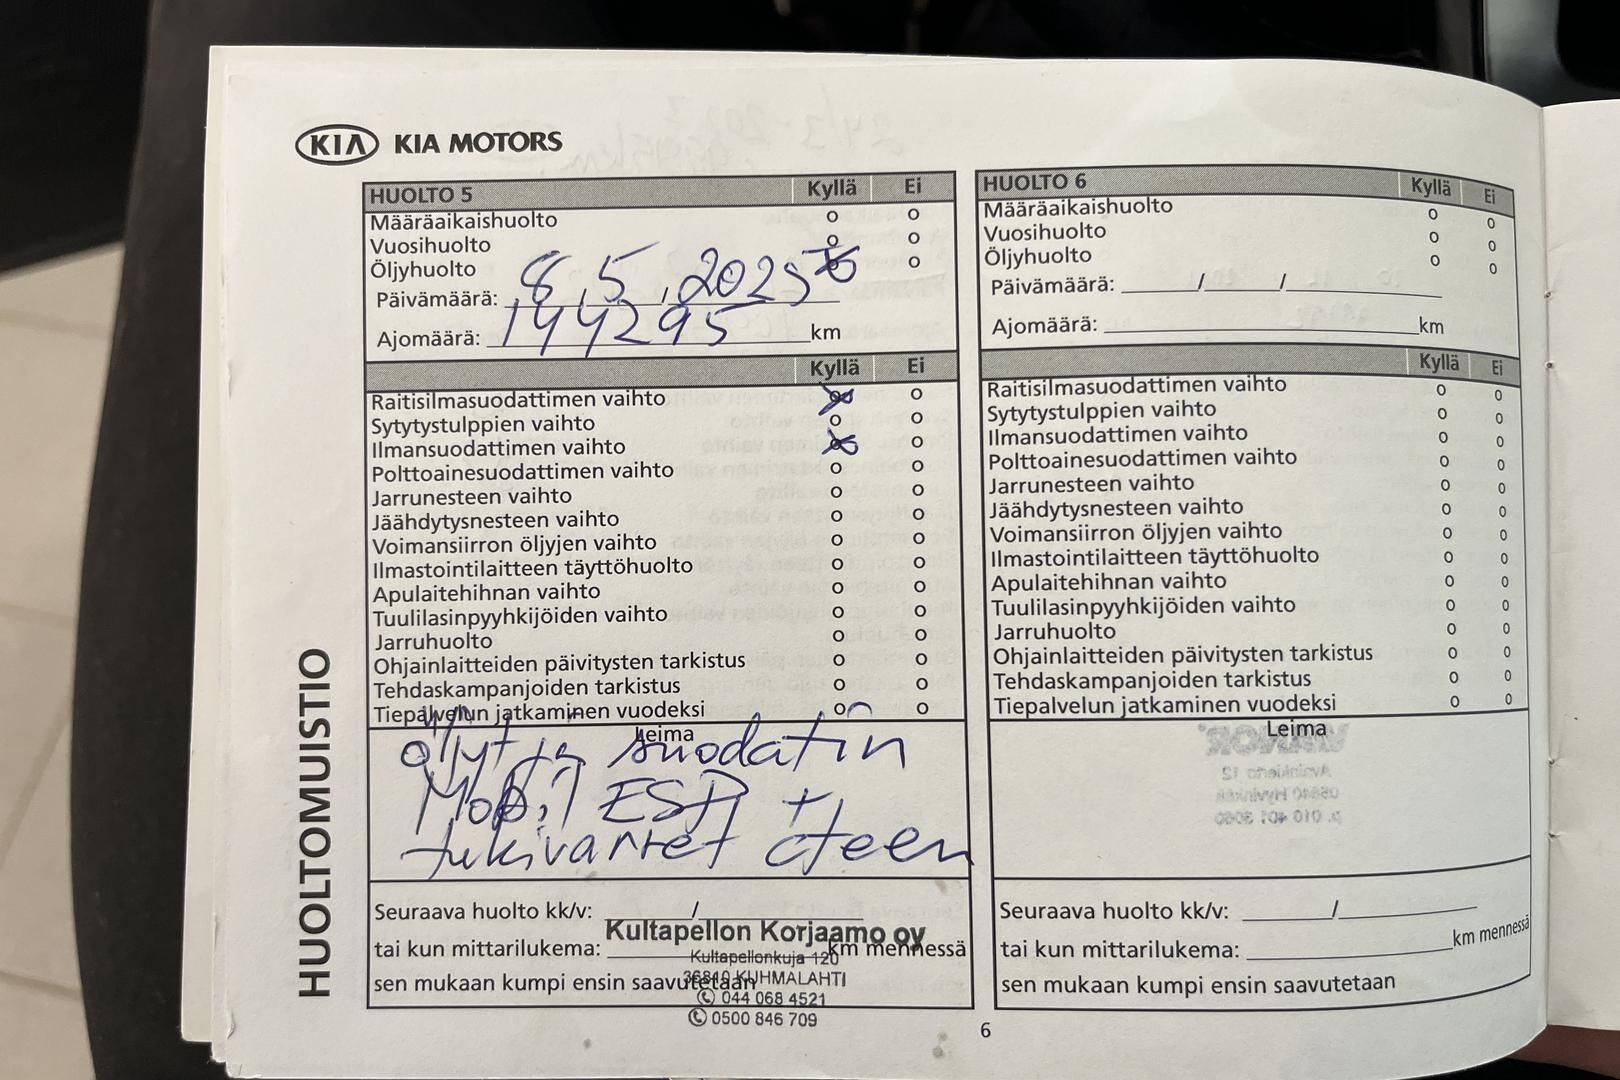 KIA KIA MOTORS
HUOLTOMUISTIO
HUOLTO 5 Kyllä Ei
Määräaikaishuolto o o
Vuosihuolto o o
Öljyhuolto o o
Päivämäärä: 8.5.2025
Ajomäärä: 144295 km
Kyllä Ei
Raitisilmasuodattimen vaihto o o
Sytytystulppien vaihto o o
Ilmansuodattimen vaihto o o
Polttoainesuodattimen vaihto o o
Jarrunesteen vaihto o o
Jäähdytysnesteen vaihto o o
Voimansiirron öljyjen vaihto o o
Ilmastointilaitteen täyttöhuolto o o
Apulaitehihnan vaihto o o
Tuulilasinpyyhkijöiden vaihto o o
Jarruhuolto o o
Ohjainlaitteiden päivitysten tarkistus o o
Tehdaskampanjoiden tarkistus o o
Tiepalvelun jatkaminen vuodeksi o o
Leima
öljyt ja suodatin
Mobil ESP +
tukivarret eteen
Seuraava huolto kk/v: /
Kultapellon Korjaamo oy
tai kun mittarilukema: km mennessä
Kultapellonkuja 120
36810 KUHMALAHTI
sen mukaan kumpi ensin saavutetaan
044 068 4521
0500 846 709
HUOLTO 6 Kyllä Ei
Määräaikaishuolto o o
Vuosihuolto o o
Öljyhuolto o o
Päivämäärä: / /
Ajomäärä: km
Kyllä Ei
Raitisilmasuodattimen vaihto o o
Sytytystulppien vaihto o o
Ilmansuodattimen vaihto o o
Polttoainesuodattimen vaihto o o
Jarrunesteen vaihto o o
Jäähdytysnesteen vaihto o o
Voimansiirron öljyjen vaihto o o
Ilmastointilaitteen täyttöhuolto o o
Apulaitehihnan vaihto o o
Tuulilasinpyyhkijöiden vaihto o o
Jarruhuolto o o
Ohjainlaitteiden päivitysten tarkistus o o
Tehdaskampanjoiden tarkistus o o
Tiepalvelun jatkaminen vuodeksi o o
Leima
Seuraava huolto kk/v: /
tai kun mittarilukema: km mennessä
sen mukaan kumpi ensin saavutetaan
6